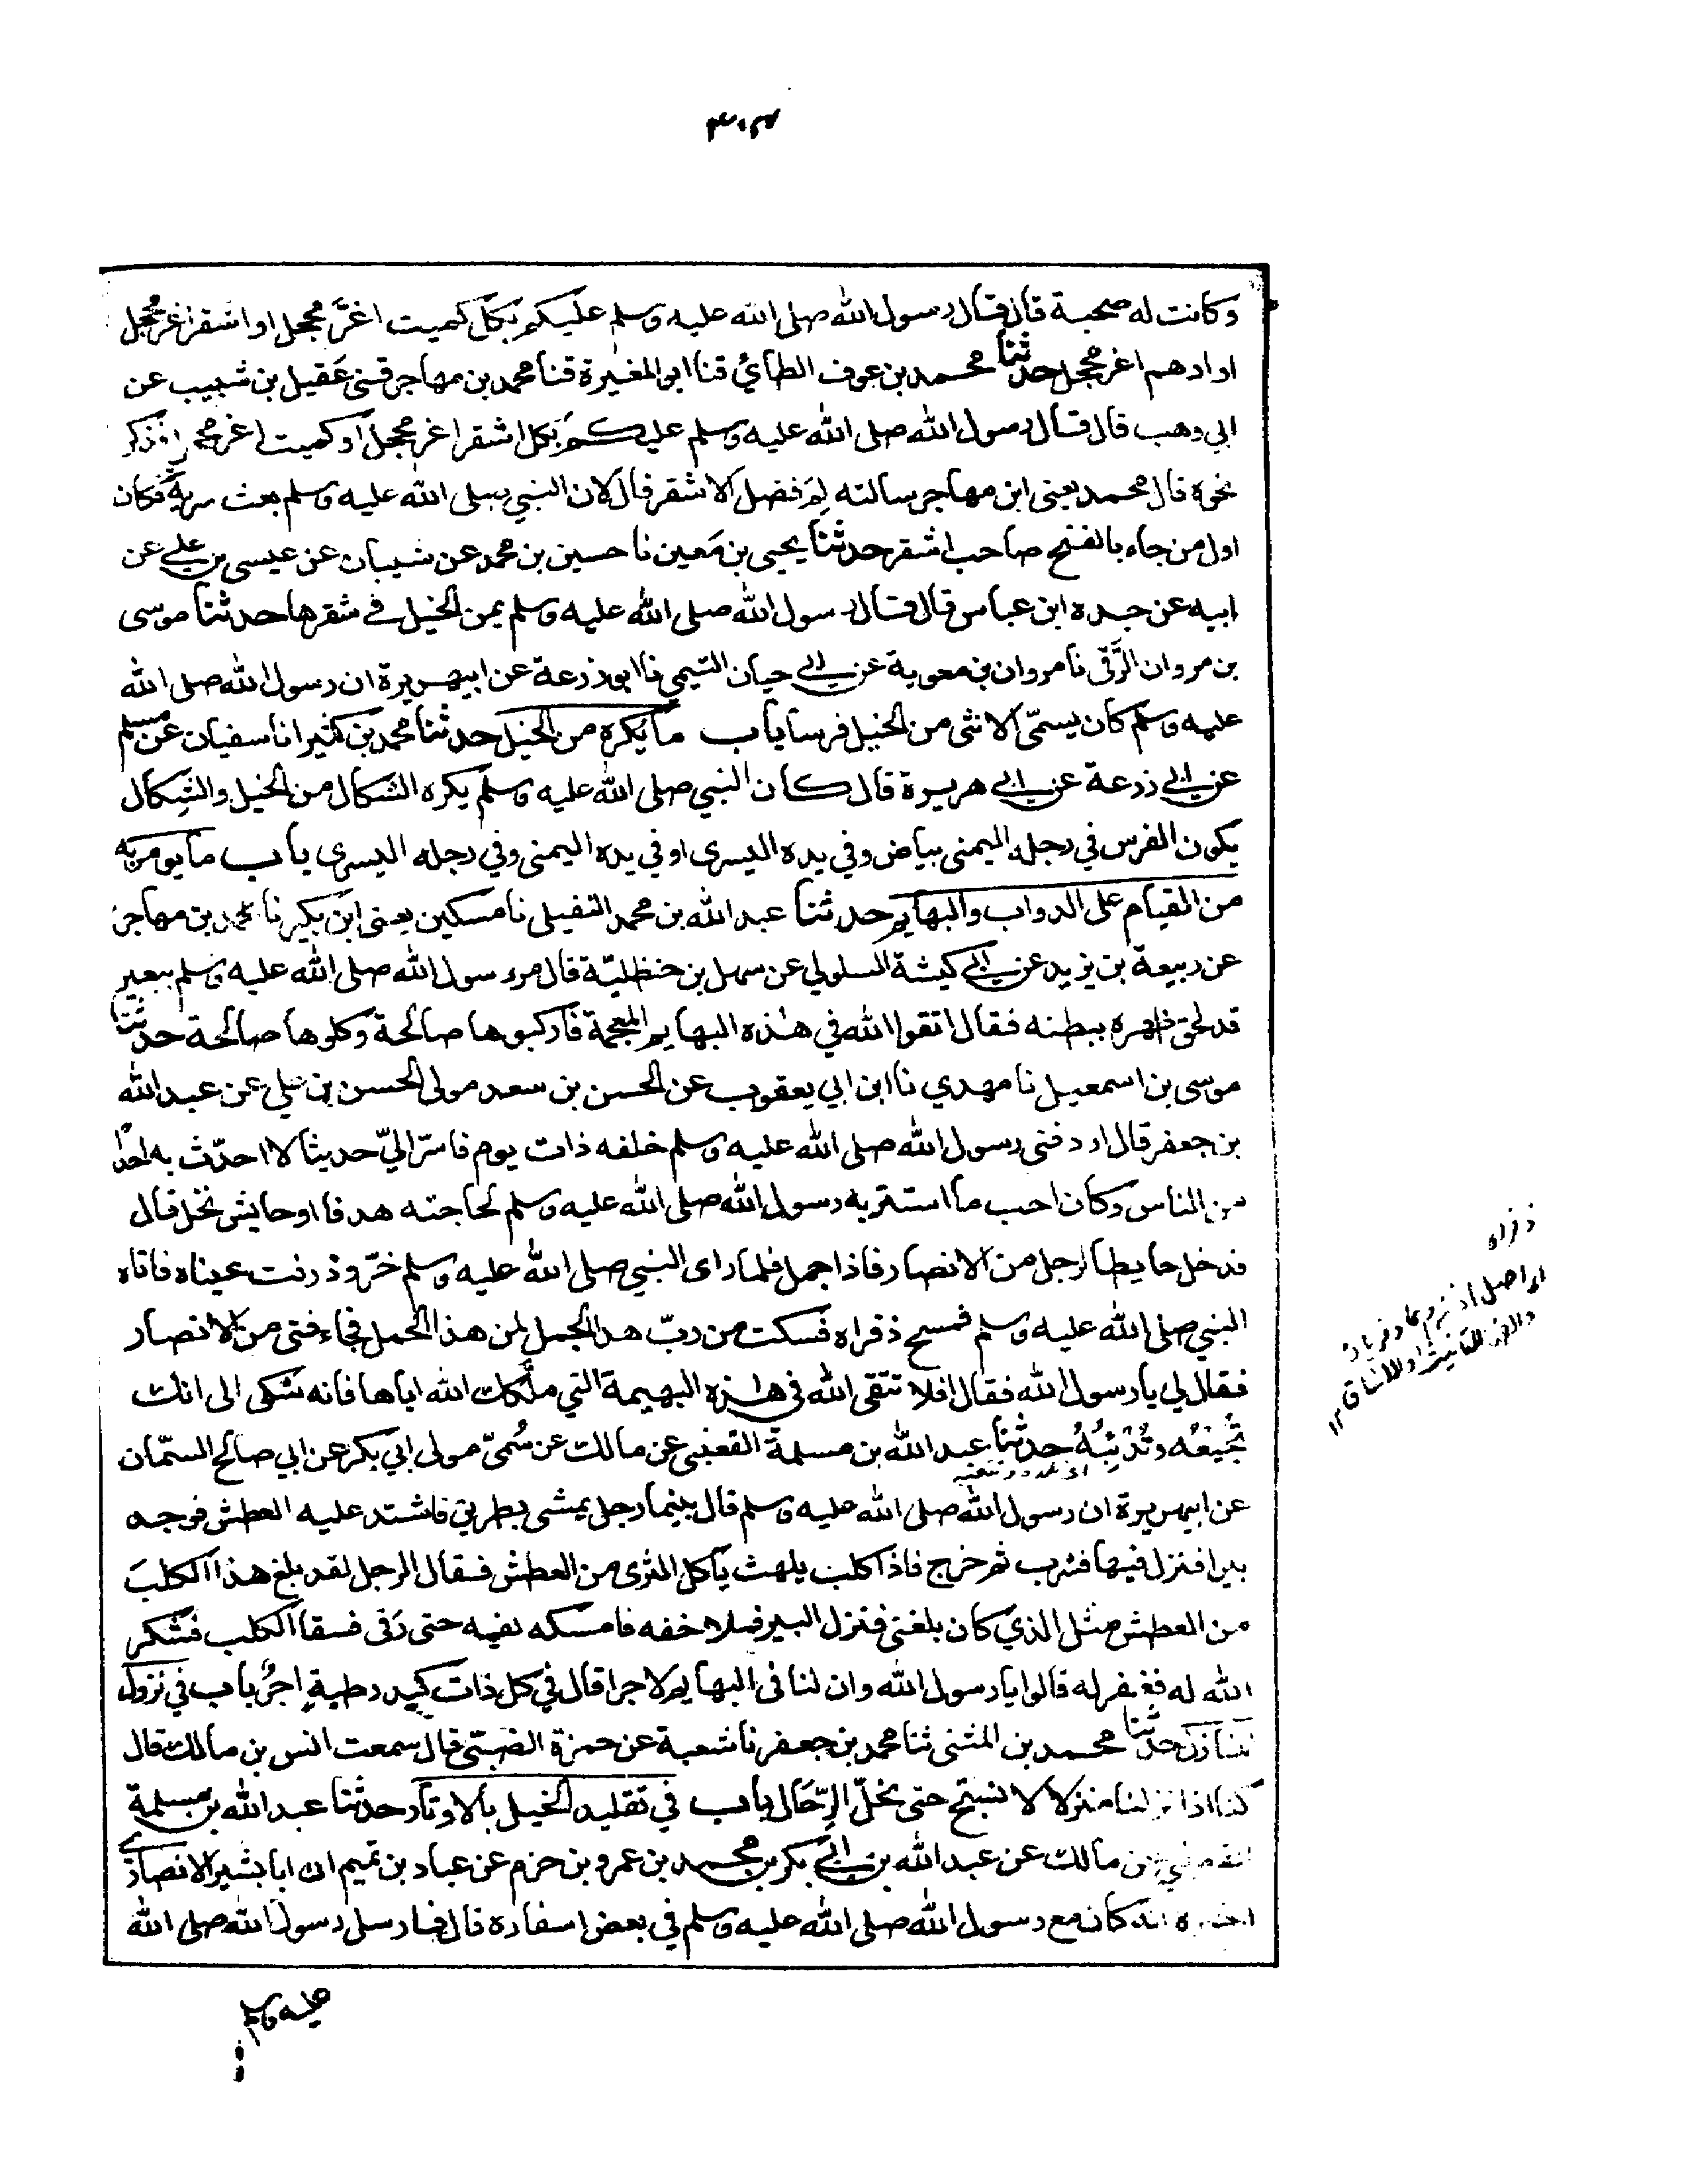 وكانت له صحبة قال قال رسول الله صلى الله عليه وسلم عليكم بكل كميت اغرّ محجل او اشقر اغر محجل
او ادهم اغر محجل حدثنا محمد بن عوف الطائي قنا ابو المغيرة قنا محمد بن مهاجر قثنى عَقيل بن شبيب عن
ابي وهب قال قال رسول الله صلى الله عليه وسلم عليكم بكل اشقر اغر محجل او كميت اغر فذكر
نحوه قال محمد يعنى ابن مهاجر سالته لِمَ فضل الاشقر قال لان النبي صلى الله عليه وسلم بعث سرية فكان
اول من جاء بالفتح صاحب اشقر حدثنا يحيى بن مَعين نا حسين بن محمد عن شيبان عن عيسى بن علي عن
ابيه عن جده ابن عباس قال قال رسول الله صلى الله عليه وسلم يمن الخيل في شقرها حدثنا موسى
بن مروان الرَّقّى نا مروان بن معوية عن ابي حيان التيمي نا ابو زرعة عن ابي هريرة ان رسول الله صلى الله
عليه وسلم كان يسمّى الانثى من الخيل فرسا باب ما يكره من الخيل حدثنا محمد بن كثير انا سفيان عن سلم
عن ابي زرعة عن ابي هريرة قال كان النبي صلى الله عليه وسلم يكره الشكال من الخيل والشِكال
يكون الفرس في رجله اليمنى بياض وفي يده اليسرى او في يده اليمنى وفي رجله اليسرى باب ما يومر به
من القيام على الدواب والبهايم حدثنا عبد الله بن محمد النفيلي نا مسكين يعنى ابن بكير نا محمد بن مهاجر
عن ربيعة بن يزيد عن ابي كبشة السلولي عن سهل بن حنظليّة قال مر رسول الله صلى الله عليه وسلم ببعير
قد لحق ظهره ببطنه فقال اتقوا الله في هذه البهايم المعجمة فاركبوها صالحة وكلوها صالحة حدثنا
موسى بن اسمعيل نا مهدي نا ابن ابي يعقوب عن الحسن بن سعد مولى الحسن بن علي عن عبد الله
بن جعفر قال اردفنى رسول الله صلى الله عليه وسلم خلفه ذات يوم فاسرّ اليّ حديثا لا احدّث به احدًا
من الناس وكان احب ما استتر به رسول الله صلى الله عليه وسلم لحاجته هدفا او حايش نخل قال
فدخل حايطا لرجل من الانصار فاذا جمل فلما راى النبي صلى الله عليه وسلم خرّ وذرفت عيناه فاتاه
النبي صلى الله عليه وسلم فمسح ذفراه فسكت من ربّ هذا الجمل لمن هذا الجمل فجاء فتى من الانصار
فقال لي يا رسول الله فقال افلا تتقى الله في هذه البهيمة التي ملّكك الله اياها فانه شكى الى انك
تُجيعُه وتُدْئِبُهُ حدثنا عبد الله بن مسلمة القعنبى عن مالك عن سُمىّ مولى ابي بكر عن ابي صالح السمّان
عن ابي هريرة ان رسول الله صلى الله عليه وسلم قال بينما رجل يمشى بطريق فاشتد عليه العطش فوجد
بيرا فنزل فيها فشرب ثم خرج فاذا كلب يلهث يأكل الثرى من العطش فقال الرجل لقد بلغ هذا الكلبَ
من العطش مثل الذي كان بلغنى فنزل البير فملا خفه فامسكه بفيه حتى رَقى فسقا الكلب فشكر
الله له فغفر له قالوا يا رسول الله وان لنا فى البهايم لاجرا قال في كل ذات كبد رطبة اجرٌ باب في نزول
المنازل حدثنا محمد بن المثنى ثنا محمد بن جعفر نا شعبة عن حمزة الضبّى قال سمعت انس بن مالك قال
كنا اذا نزلنا منزلا لا نسبّح حتى نحلّ الرِّحَال باب في تقليد الخيل بالاوتار حدثنا عبد الله بن مسلمة
القعنبي عن مالك عن عبد الله بن ابي بكر بن محمد بن عمرو بن حزم عن عباد بن تميم ان ابا بشير الانصاري
اخبره انه كان مع رسول الله صلى الله عليه وسلم في بعض اسفاره قال فارسل رسول الله صلى الله
عليه وسلم